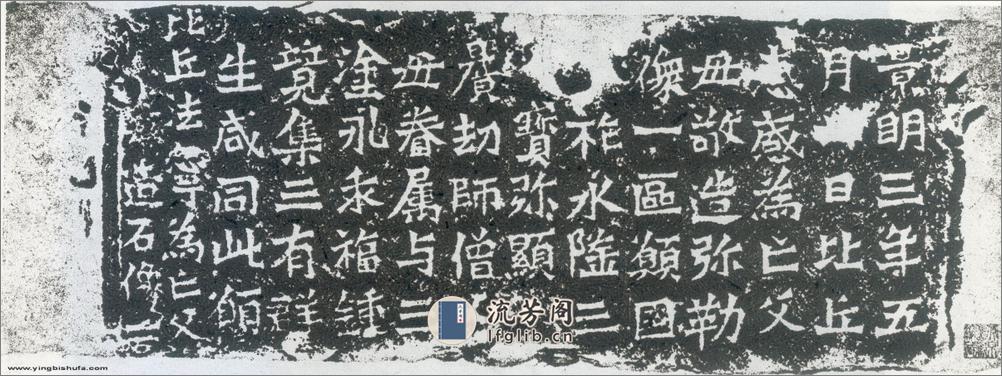 景明三年五
月日比丘
惠感為亡父
母敬造弥勒
像一區願國
祚永隆三
寳弥顯
曠劫師僧
母眷属与三
塗永乖福鍾
竟集三有群
生咸同此願
比丘法寧為亡父
造石像
流芳阁
lfglib.cn
www.yingbishufa.com